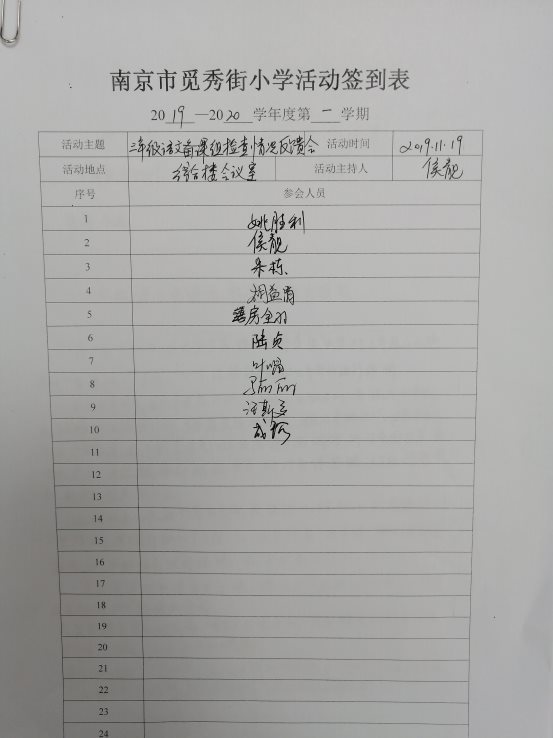 南京市觅秀街小学活动签到表
2019—2020 学年度第 一 学期
活动主题 三年级语文备课组检查情况反馈会 活动时间 2019.11.19
活动地点 综合楼会议室 活动主持人 侯靓
序号 参会人员
1 姚胜利
2 侯靓
3 朱栋
4
5
6 陆贞
7
8 马丽丽
9
10
11
12
13
14
15
16
17
18
19
20
21
22
23
24